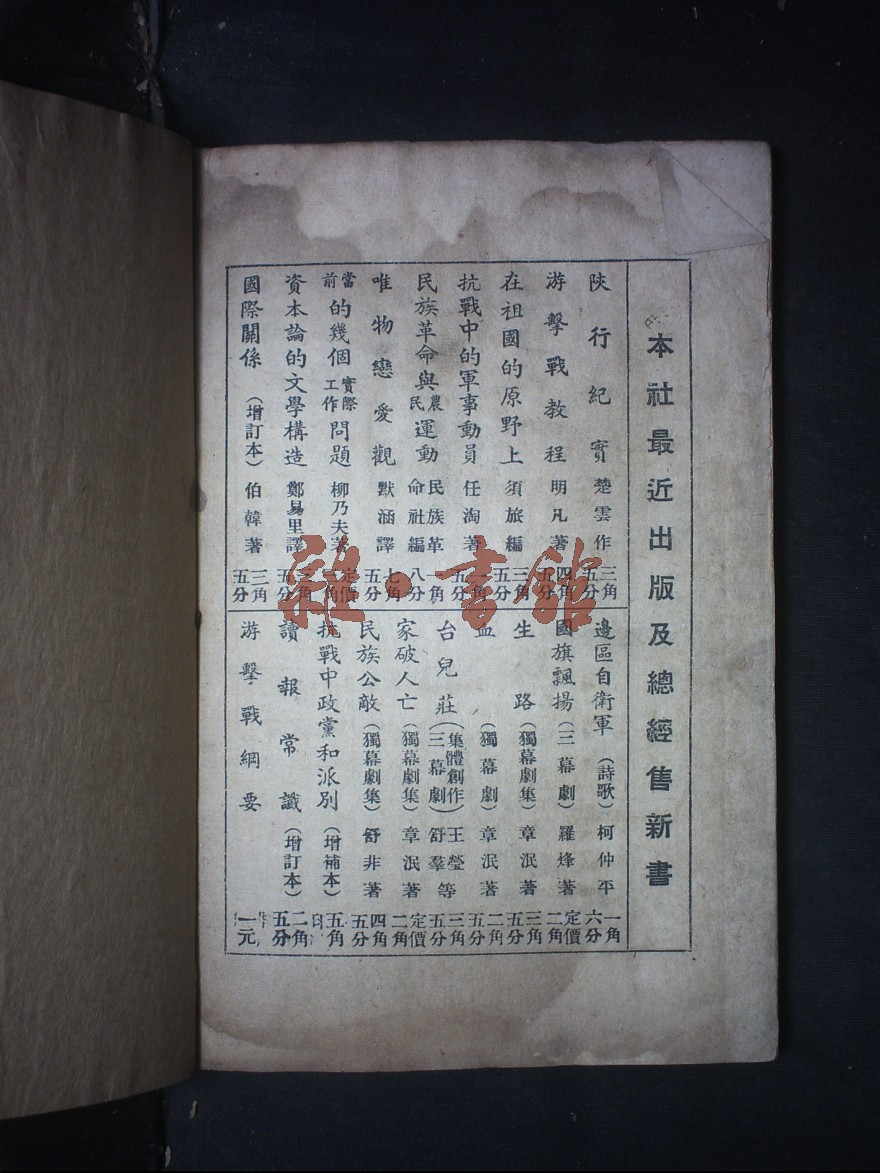 本社最近出版及總經售新書
陝行紀實 楚雲作 三角五分
游擊戰教程 明凡著 四角五分
在祖國的原野上 須旅編 三角五分
抗戰中的軍事動員 任淘著 二角五分
民族革命與農民運動 民族革命社編 一角八分
唯物戀愛觀 默涵譯 七角五分
當前的幾個實際工作問題 柳乃夫著 定價二角
資本論的文學構造 鄭易里譯 三角五分
國際關係(增訂本) 伯韓著 三角五分
邊區自衛軍(詩歌) 柯仲平 一角六分
國旗飄揚(三幕劇) 羅烽著 定價二角
生路(獨幕劇集) 章泯著 三角五分
血(獨幕劇) 章泯著 二角五分
台兒莊(集體創作)(三幕劇) 王瑩舒羣等 三角五分
家破人亡(獨幕劇集) 章泯著 定價二角
民族公敵(獨幕劇集) 舒非著 四角五分
抗戰中政黨和派別(增補本) 五角
讀報常識(增訂本) 二角五分
游擊戰綱要 一元
雜·書館